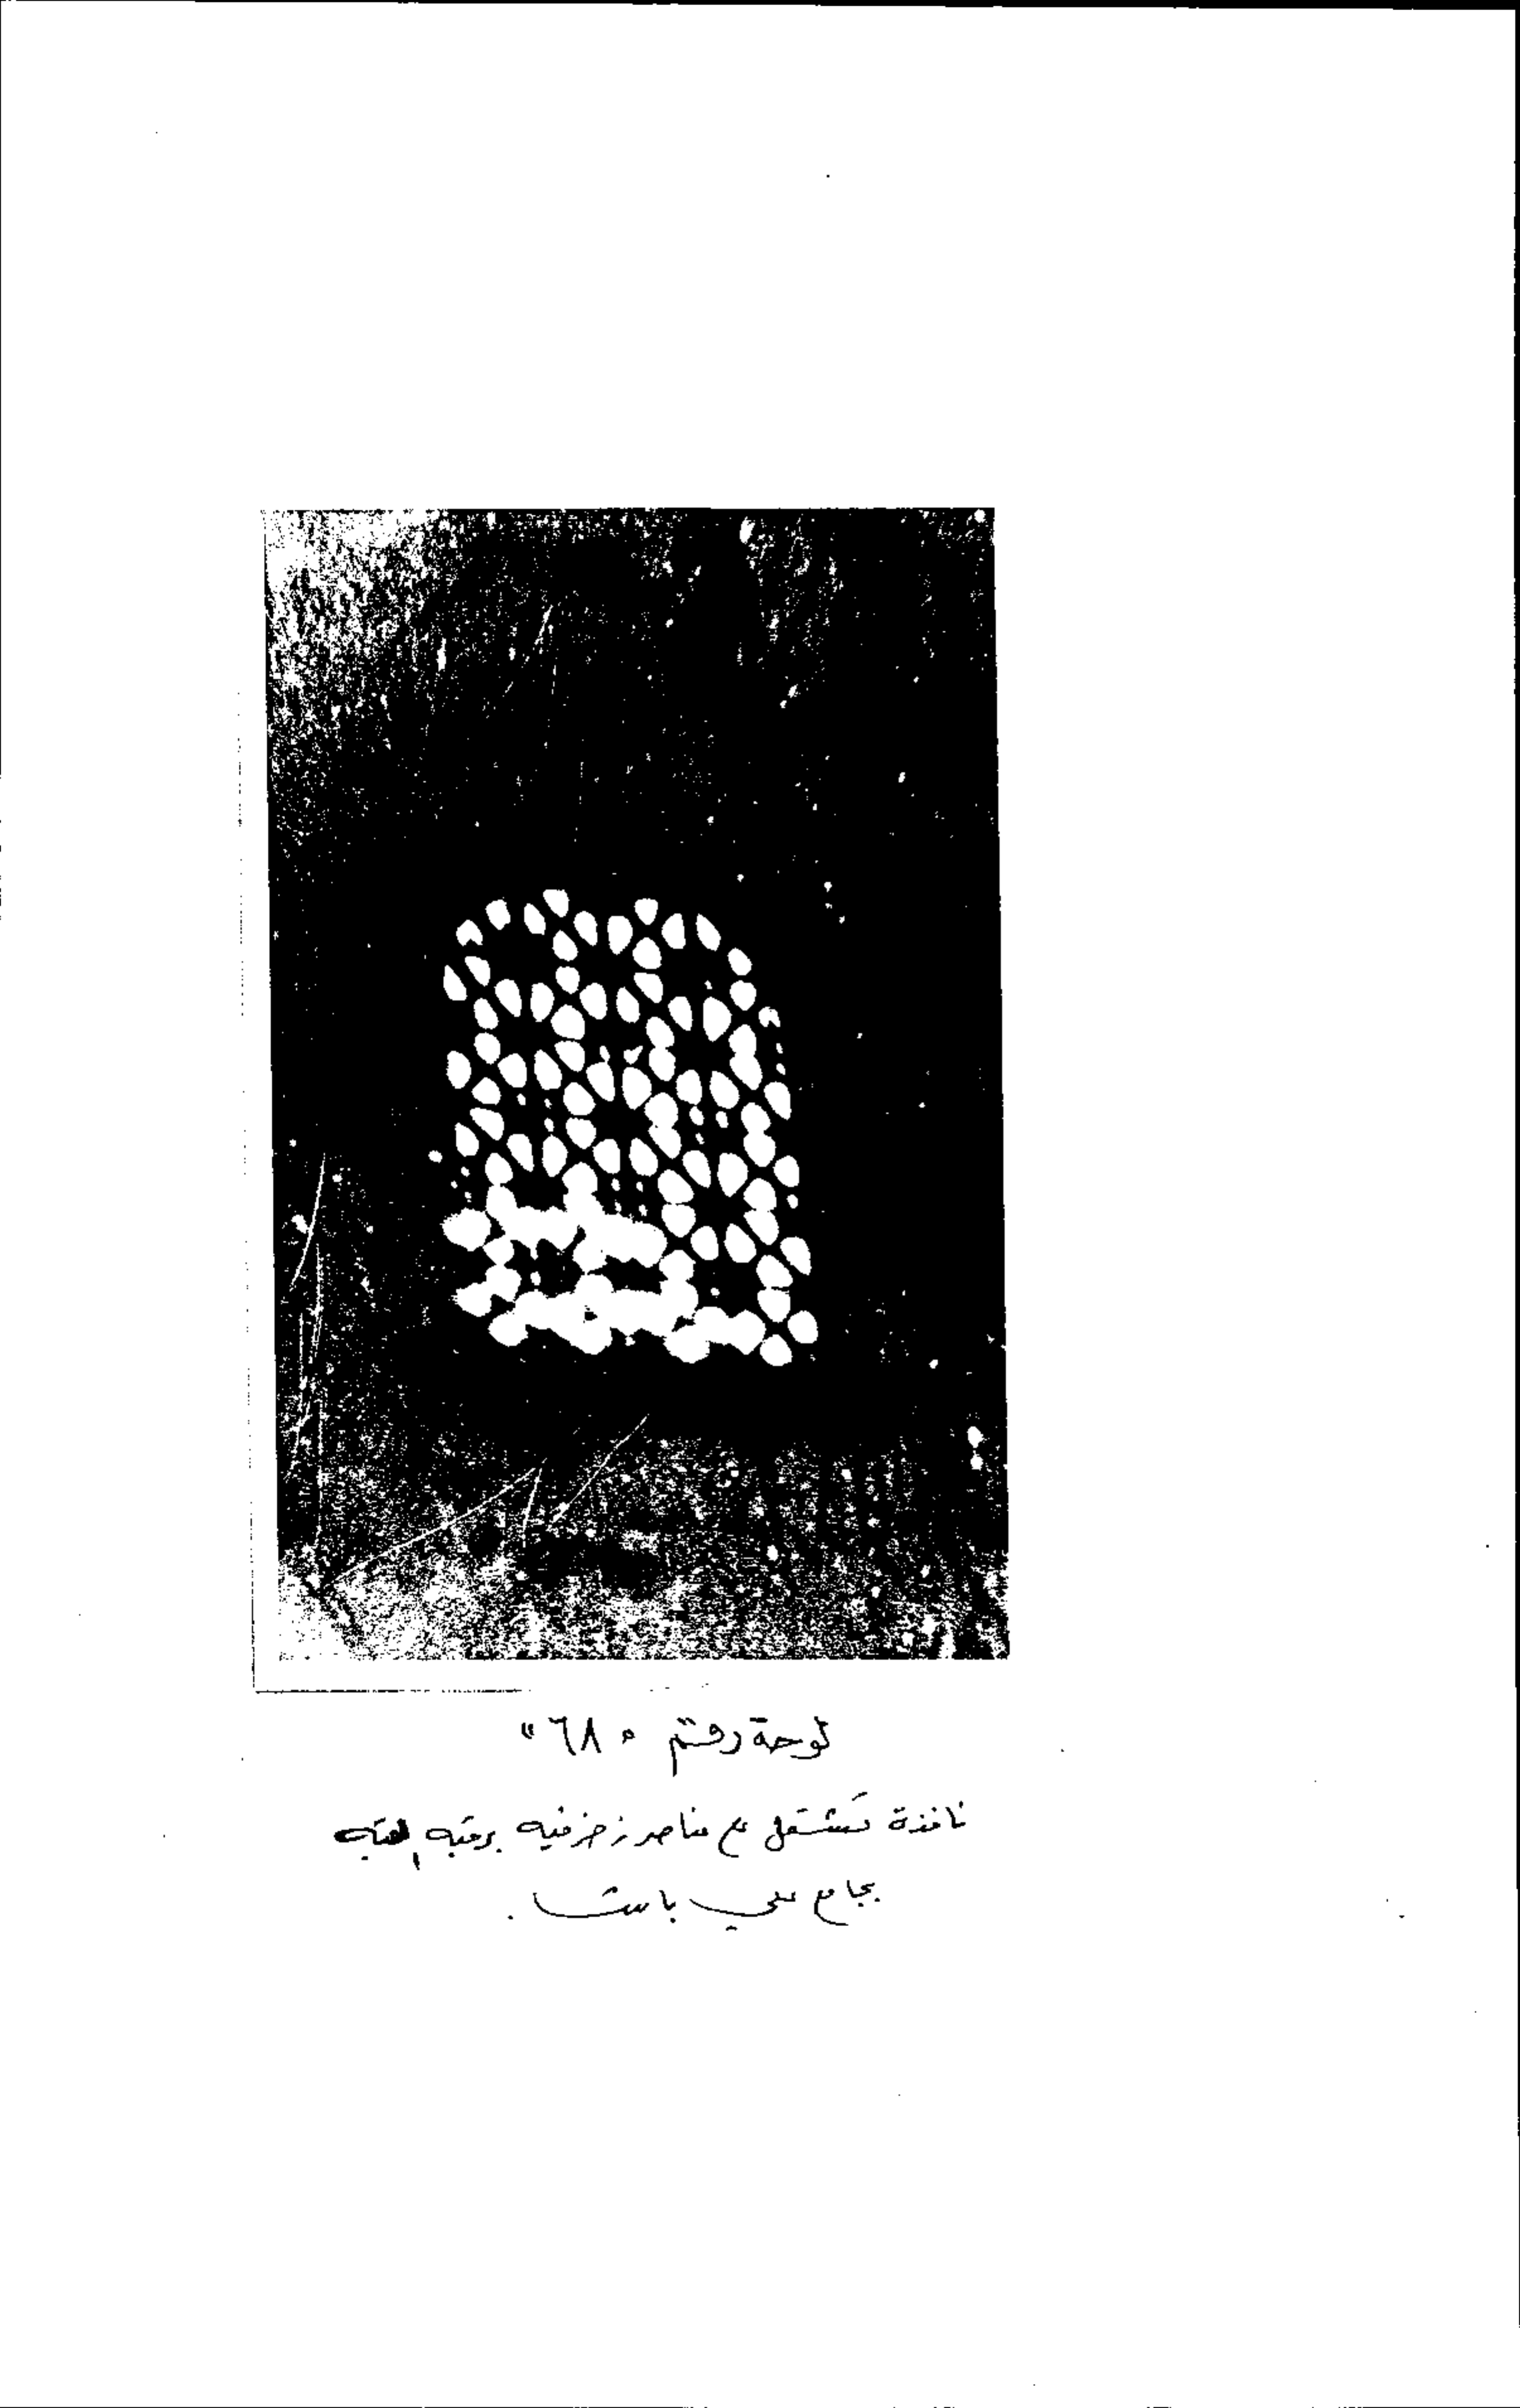 لوحة رقم «٦٨»
نافذة تشتمل على عناصر زخرفيه برقبه القبه
بجامع علي باشا .